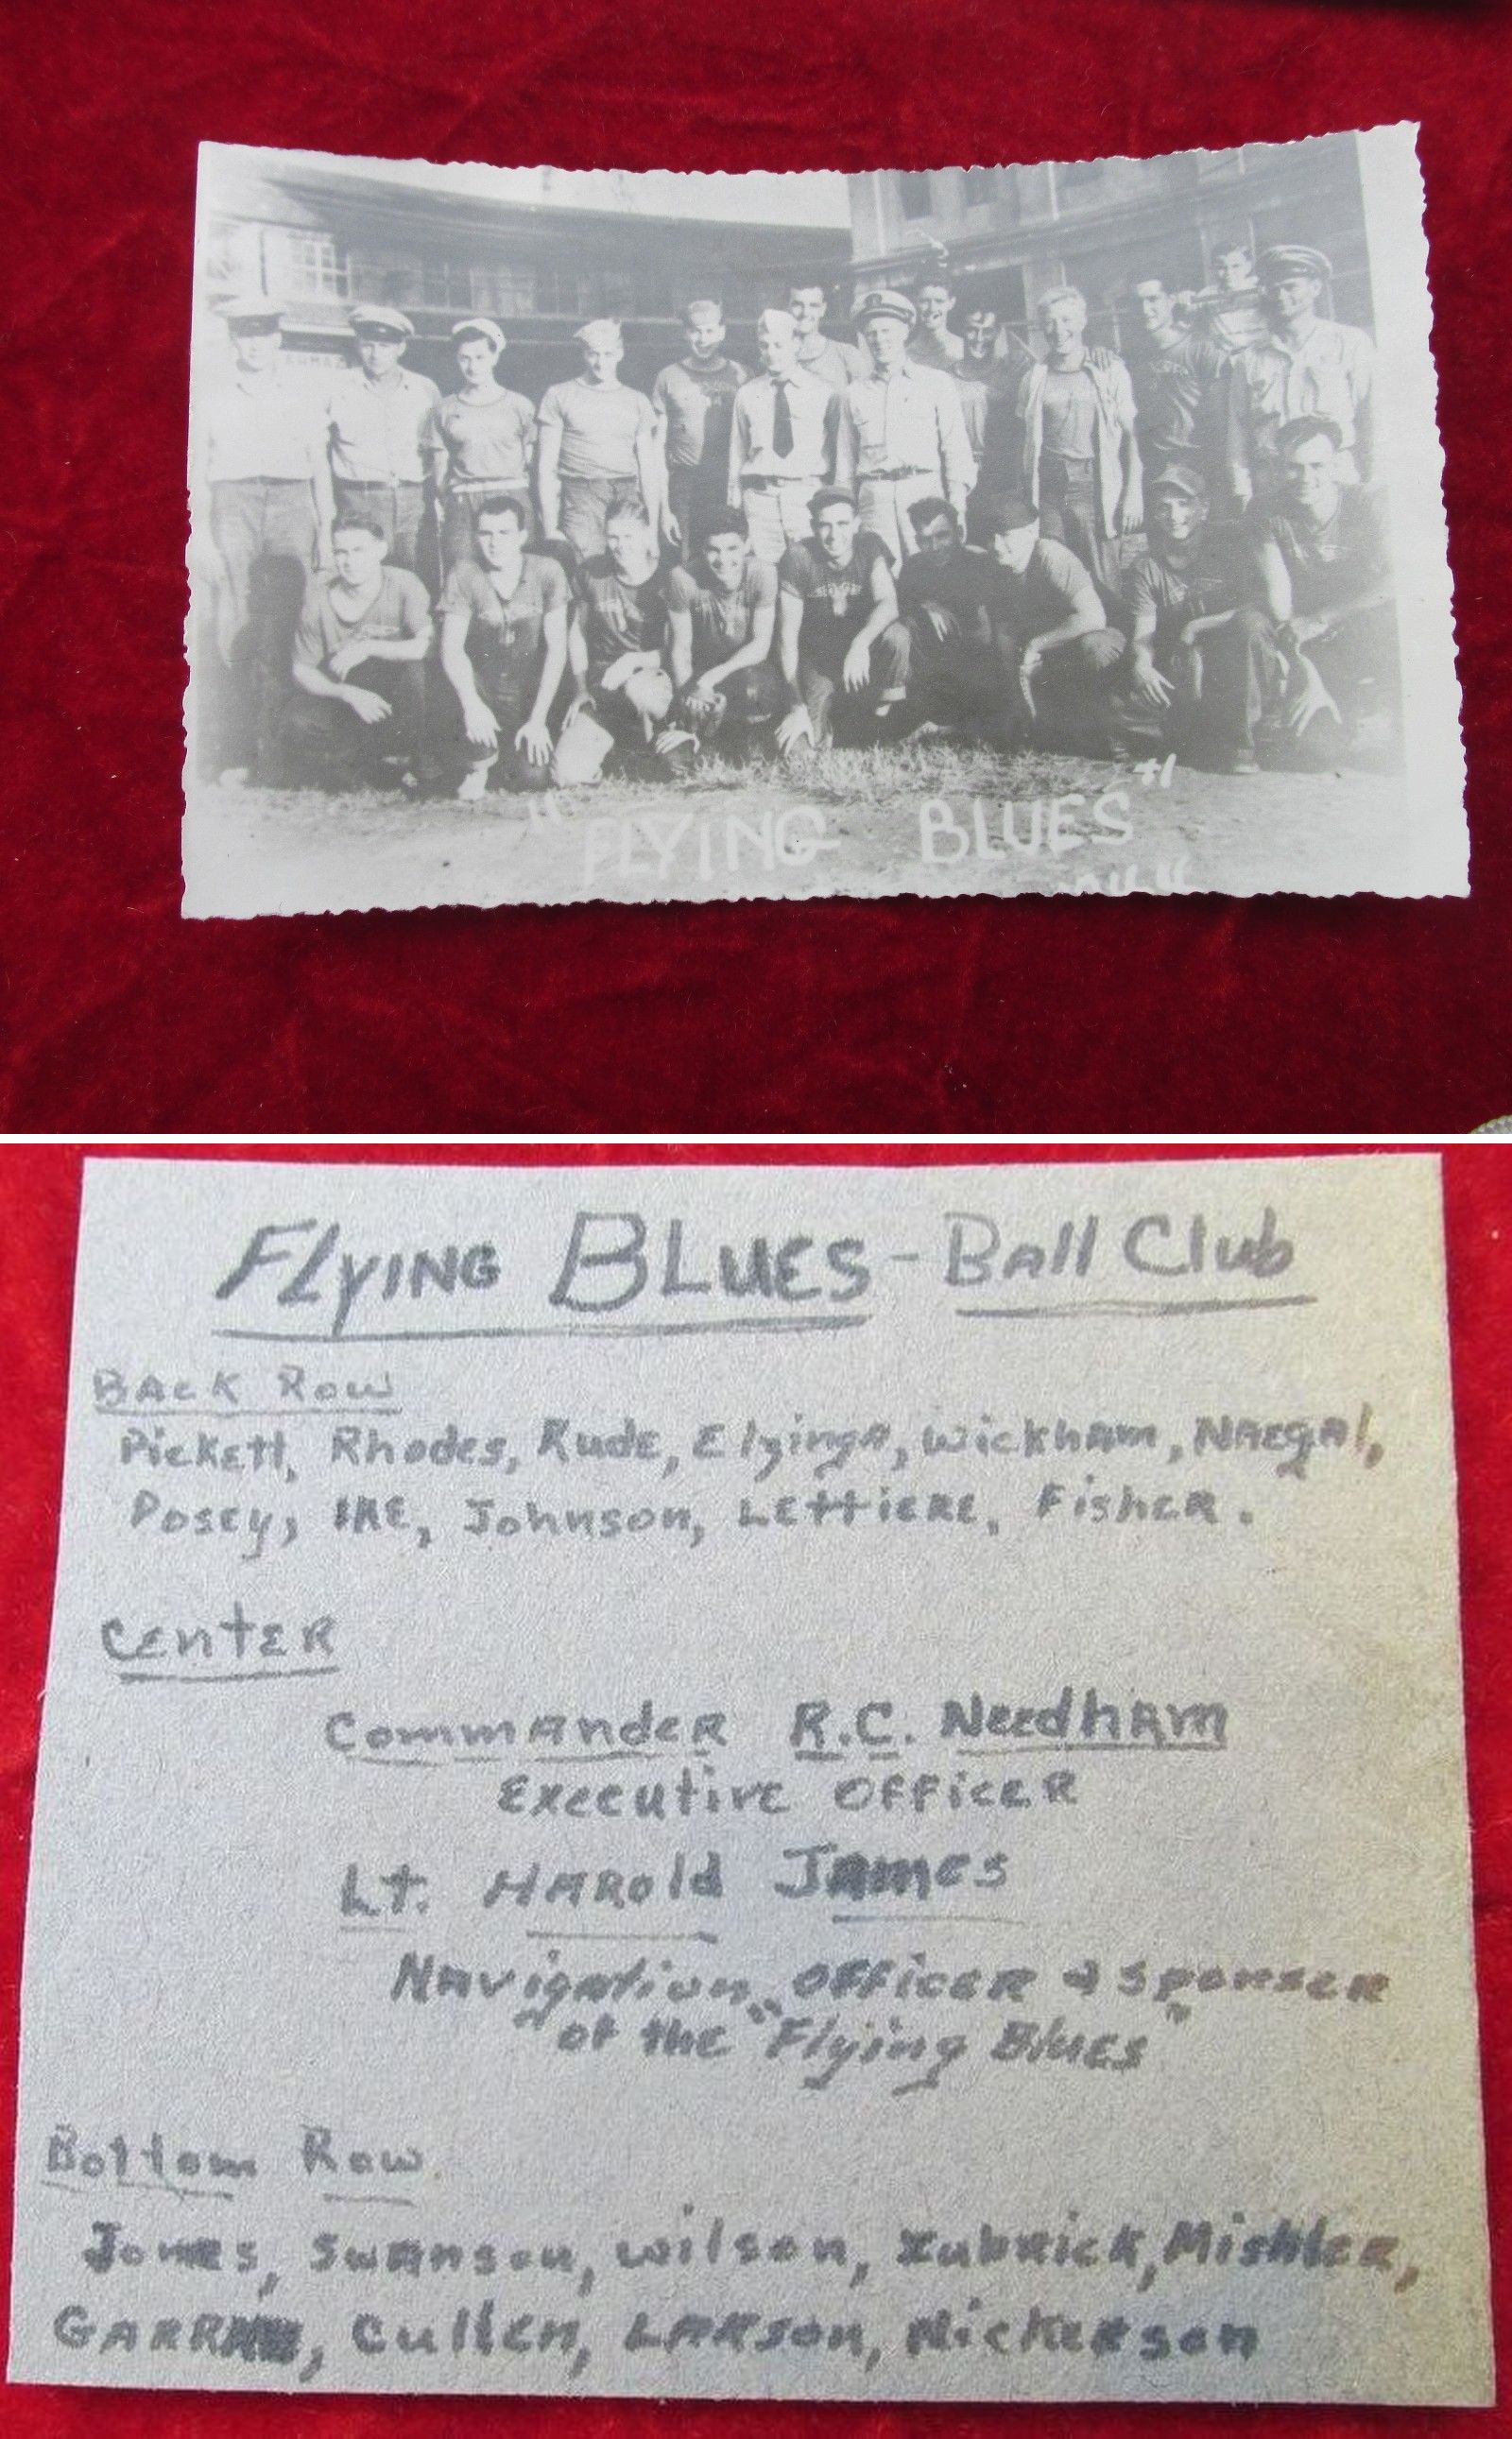 "FLYING BLUES"
FLYING BLUES - Ball Club
BACK Row
Pickett, Rhodes, RudE, Wickham, NAEgAl,
Posey, IKE, Johnson, LEttiERE, FishER.
CENtER
CommAndeR R.C. NeedhAm
Executive OFFicER
Lt. HARold JAmes
NAvigAtion OFFicER & SponsER
of the "Flying BluES"
Bottom Row
Jones, SwAnson, Wilson, ZubRick, MishlER,
Cullen, LARson, NickERson